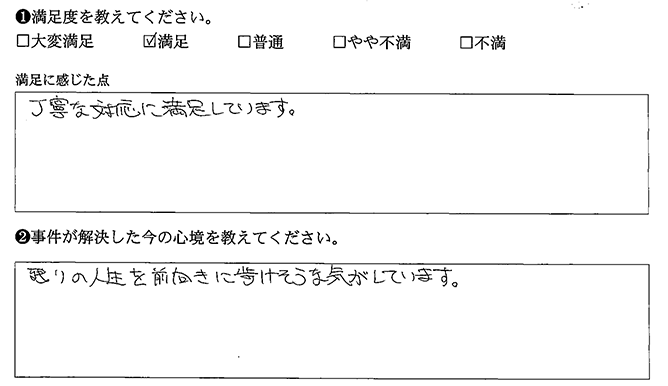 ❶満足度を教えてください。
□大変満足 ☑満足 □普通 □やや不満 □不満
満足に感じた点
丁寧な対応に満足しています。
❷事件が解決した今の心境を教えてください。
残りの人生を前向きに歩けそうな気がしています。